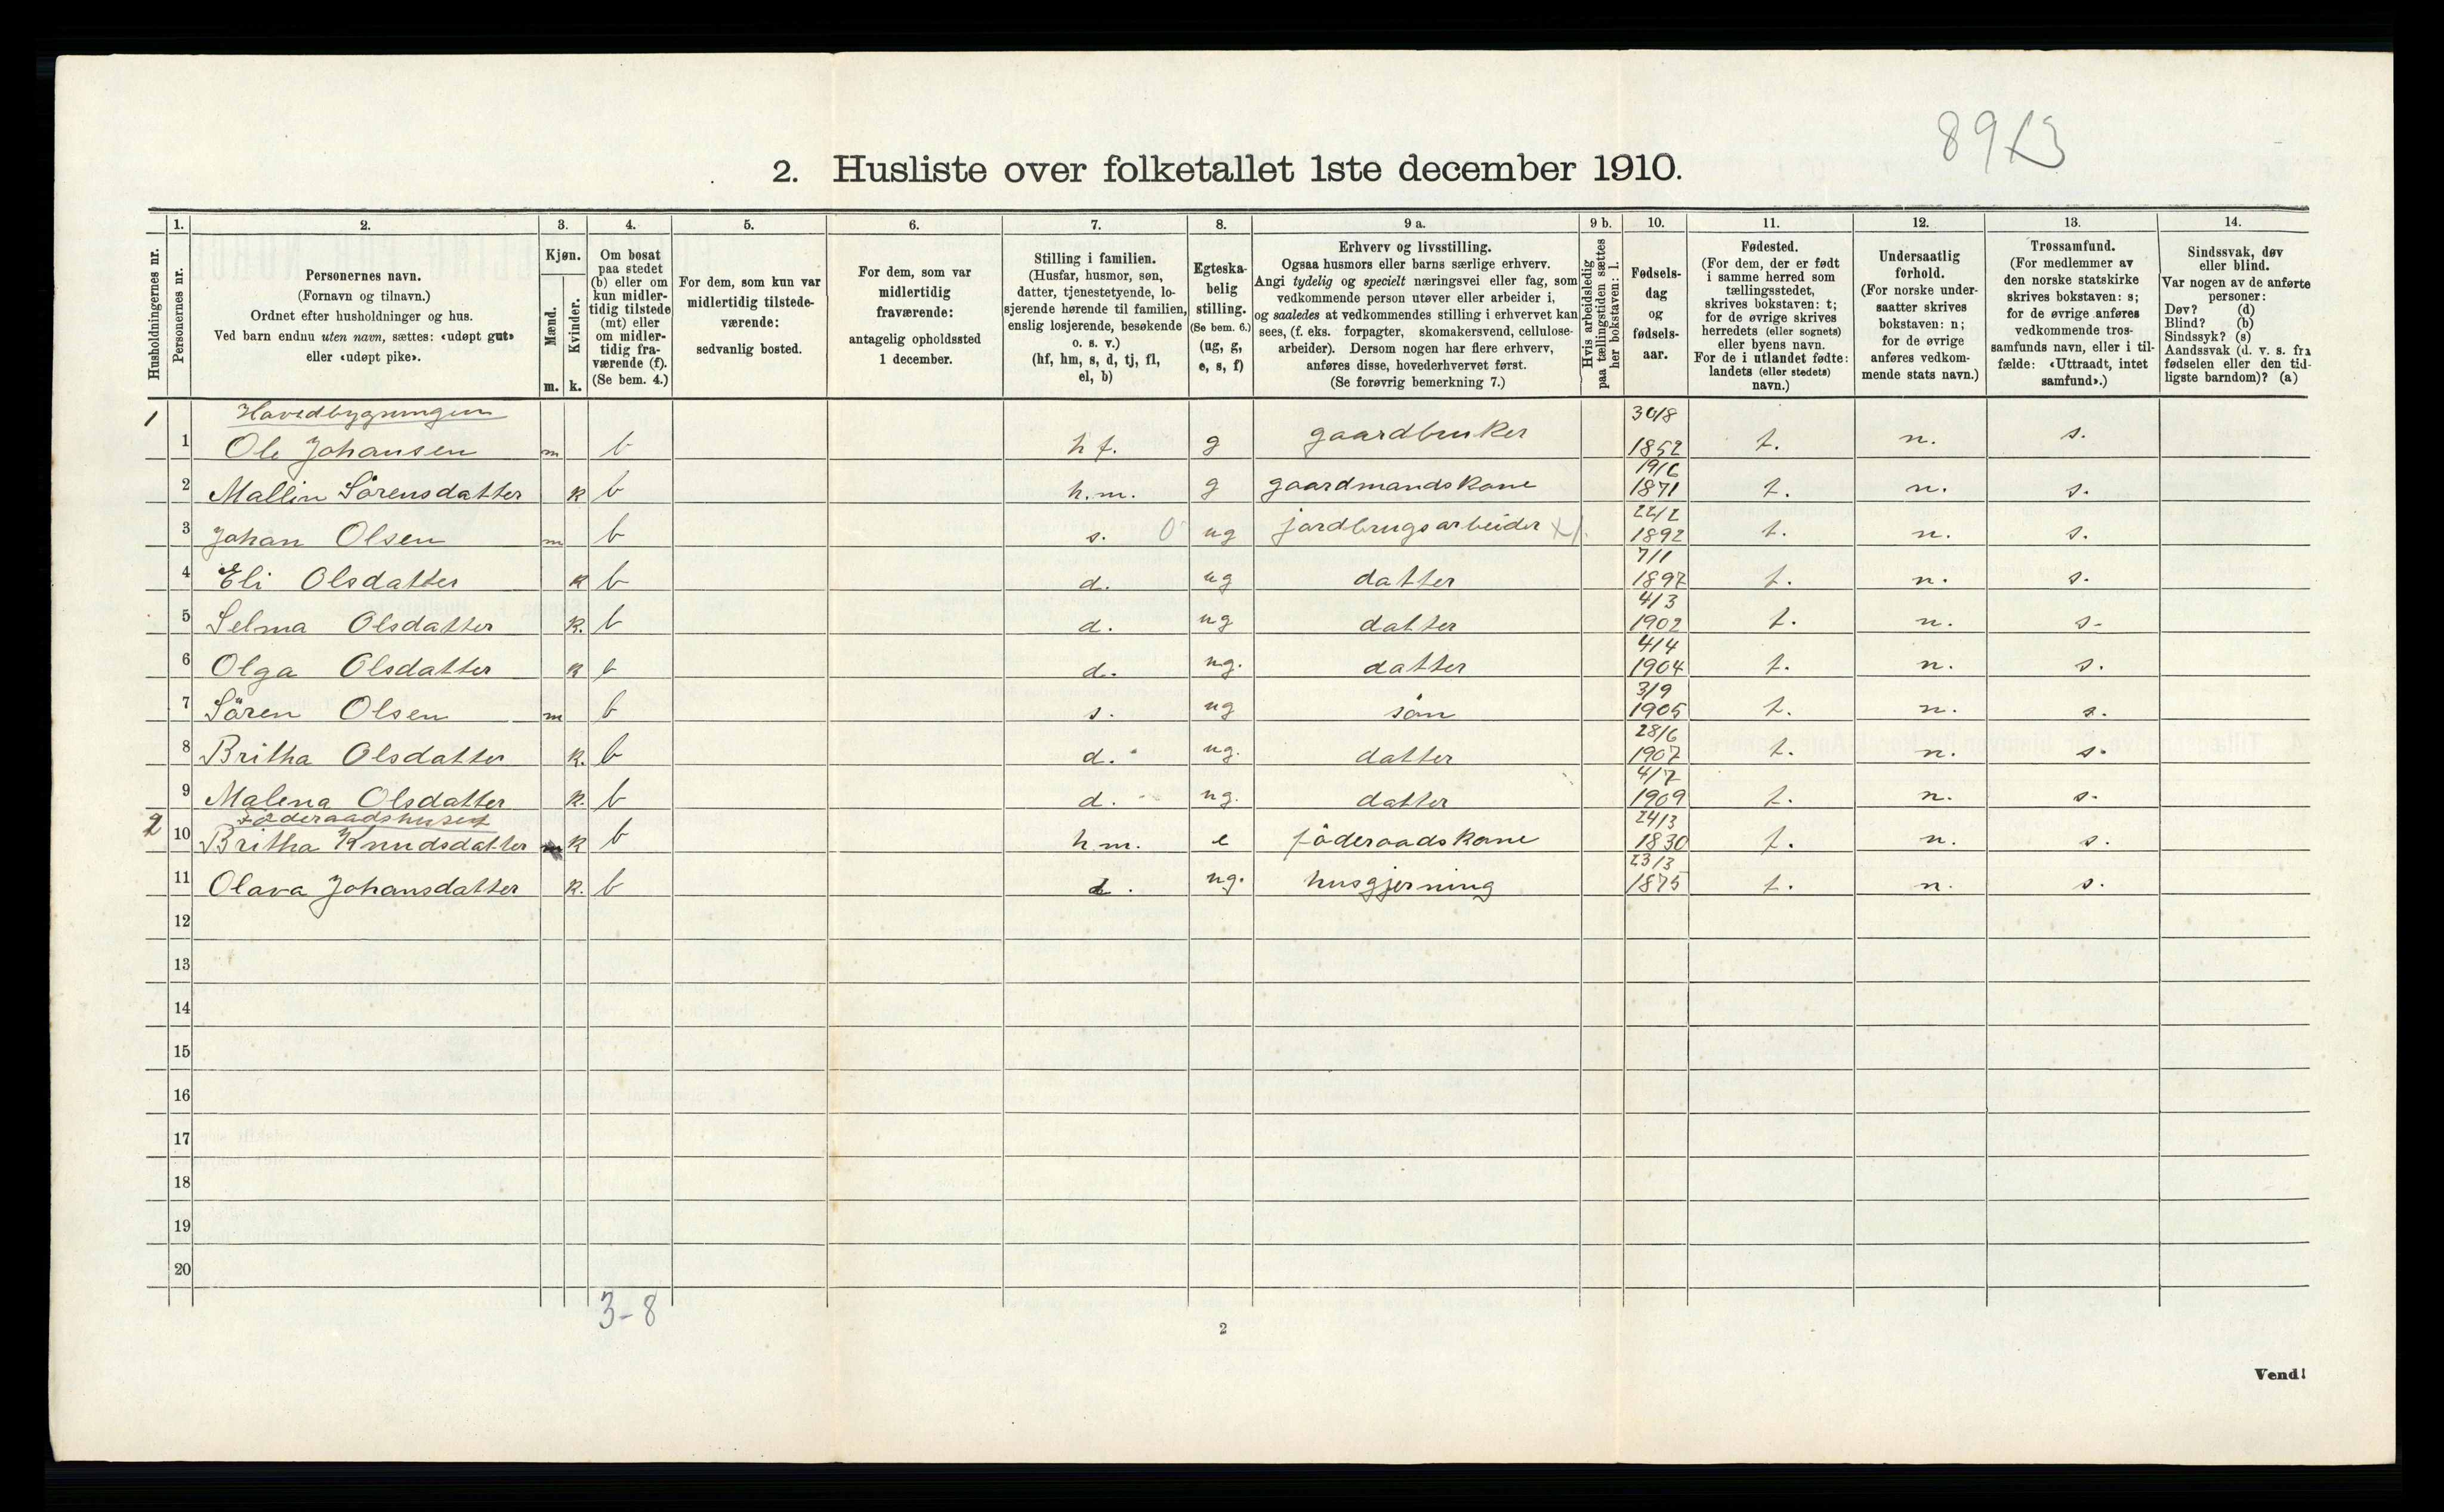 8913
2. Husliste over folketallet 1ste december 1910.
Husholdningernes nr.
1. Personernes nr.
2. Personernes navn.
(Fornavn og tilnavn.)
Ordnet efter husholdninger og hus.
Ved barn endnu uten navn, sættes: «udøpt gut»
eller «udøpt pike».
3. Kjøn.
Mænd. m.
Kvinder. k.
4. Om bosat
paa stedet
(b) eller om
kun midler-
tidig tilstede
(mt) eller
om midler-
tidig fra-
værende (f).
(Se bem. 4.)
5. For dem, som kun var
midlertidig tilstede-
værende:
sedvanlig bosted.
6. For dem, som var
midlertidig
fraværende:
antagelig opholdssted
1 december.
7. Stilling i familien.
(Husfar, husmor, søn,
datter, tjenestetyende, lo-
sjerende hørende til familien,
enslig losjerende, besøkende
o. s. v.)
(hf, hm, s, d, tj, fl,
el, b)
8. Egteska-
belig
stilling.
(Se bem. 6.)
(ug, g,
e, s, f)
9 a. Erhverv og livsstilling.
Ogsaa husmors eller barns særlige erhverv.
Angi tydelig og specielt næringsvei eller fag, som
vedkommende person utøver eller arbeider i,
og saaledes at vedkommendes stilling i erhvervet kan
sees, (f. eks. forpagter, skomakersvend, cellulose-
arbeider). Dersom nogen har flere erhverv,
anføres disse, hovederhvervet først.
(Se forøvrig bemerkning 7.)
9 b. Hvis arbeidsledig
paa tællingstiden sættes
her bokstaven: l.
10. Fødsels-
dag
og
fødsels-
aar.
11. Fødested.
(For dem, der er født
i samme herred som
tællingsstedet,
skrives bokstaven: t;
for de øvrige skrives
herredets (eller sognets)
eller byens navn.
For de i utlandet fødte:
landets (eller stedets)
navn.)
12. Undersaatlig
forhold.
(For norske under-
saatter skrives
bokstaven: n;
for de øvrige
anføres vedkom-
mende stats navn.)
13. Trossamfund.
(For medlemmer av
den norske statskirke
skrives bokstaven: s;
for de øvrige anføres
vedkommende tros-
samfunds navn, eller i til-
fælde: «Uttraadt, intet
samfund».)
14. Sindssvak, døv
eller blind.
Var nogen av de anførte
personer:
Døv? (d)
Blind? (b)
Sindssyk? (s)
Aandssvak (d. v. s. fra
fødselen eller den tid-
ligste barndom)? (a)
1 Hovedbygningen 30/8
1 Ole Johansen m b h f. g gaardbruker 1852 t. n. s.
19/6
2 Mallin Sörensdatter k b h.m. g gaardmandskone 1871 t. n. s.
22/2
3 Johan Olsen m b s. 0 ug jordbrugsarbeider 1892 t. n. s.
7/1
4 Eli Olsdatter k b d. ug datter 1897 t. n. s.
4/3
5 Selma Olsdatter k. b d. ug datter 1902 t. n. s.
4/4
6 Olga Olsdatter k b d. ug. datter 1904 t. n. s.
3/9
7 Sören Olsen m b s. ug sön 1905 t. n. s.
28/6
8 Britha Olsdatter k. b d. ug. datter 1907 t. n. s.
4/7
9 Malena Olsdatter k. b d. ug. datter 1909 t. n. s.
2 Föderaadshuset 24/3
10 Britha Knudsdatter k b h.m. e föderaadskone 1830 t. n. s.
23/3
11 Olava Johansdatter k. b d. ug. husgjerning 1875 t. n. s.
12
13
14
15
16
17
18
19
20
3-8
2
Vend!